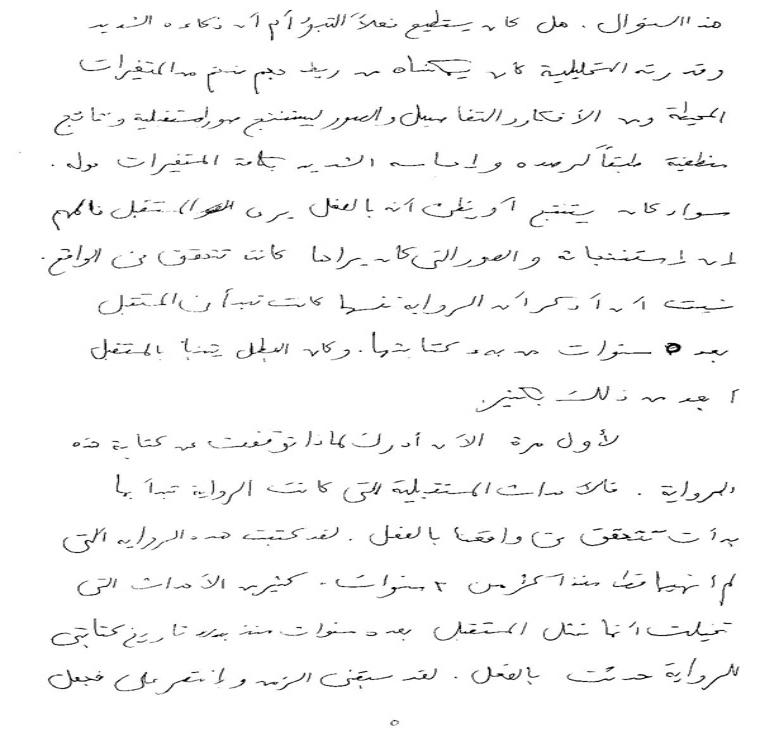 هذا السؤال. هل كان يستطيع فعلاً التنبؤ أم أن ذكاءه الشديد
وقدرته التحليلية كان يمكناه من ربط حجم ضخم من المتغيرات
المحيطة ومن الأفكار والتفاصيل والصور ليستنتج صور مستقبلية ونتائج
منطقية طبقاً لرصده وإحساسه الشديد بكافة المتغيرات حوله.
سواء كان يستنتج أو يظن أنه بالفعل يرى المستقبل فالمهم
إن إستنتاجاته والصور التي كان يراها كانت تتحقق في الواقع.
نسيت أن أذكر أن الرواية نفسها كانت تبدأ في المستقبل
بعد ٥ سنوات من بدء كتابتها. وكان البطل يتنبأ بالمستقبل
أبعد من ذلك بكثير.
لأول مرة الآن أدرك لماذا توقفت عن كتابة هذه
الرواية. فالأحداث المستقبلية التي كانت الرواية تبدأ بها
بدأت تتحقق في واقعنا بالفعل. لقد كتبت هذه الرواية التي
لم أنهيها قط منذ أكثر من ٢ سنوات. كثير من الأحداث التي
تخيلت أنها تمثل المستقبل بعد ٥ سنوات منذ بدء تاريخ كتابتي
للرواية حدثت بالفعل. لقد سبقني الزمن وإنتصر علي فجعل
٥